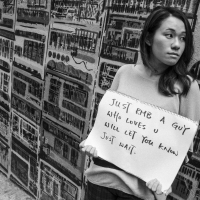 JUST RMB A GUY
WHO LOVES U
WILL LET YOU KNOW
JUST WAIT.